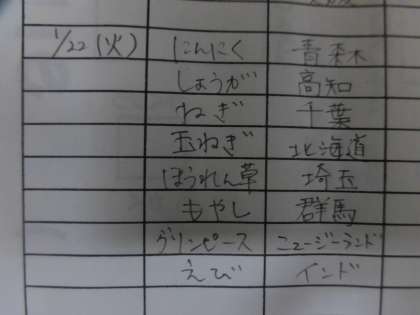 1/22(火) にんにく 青森
しょうが 高知
ねぎ 千葉
玉ねぎ 北海道
ほうれん草 埼玉
もやし 群馬
グリンピース ニュージーランド
えび インド